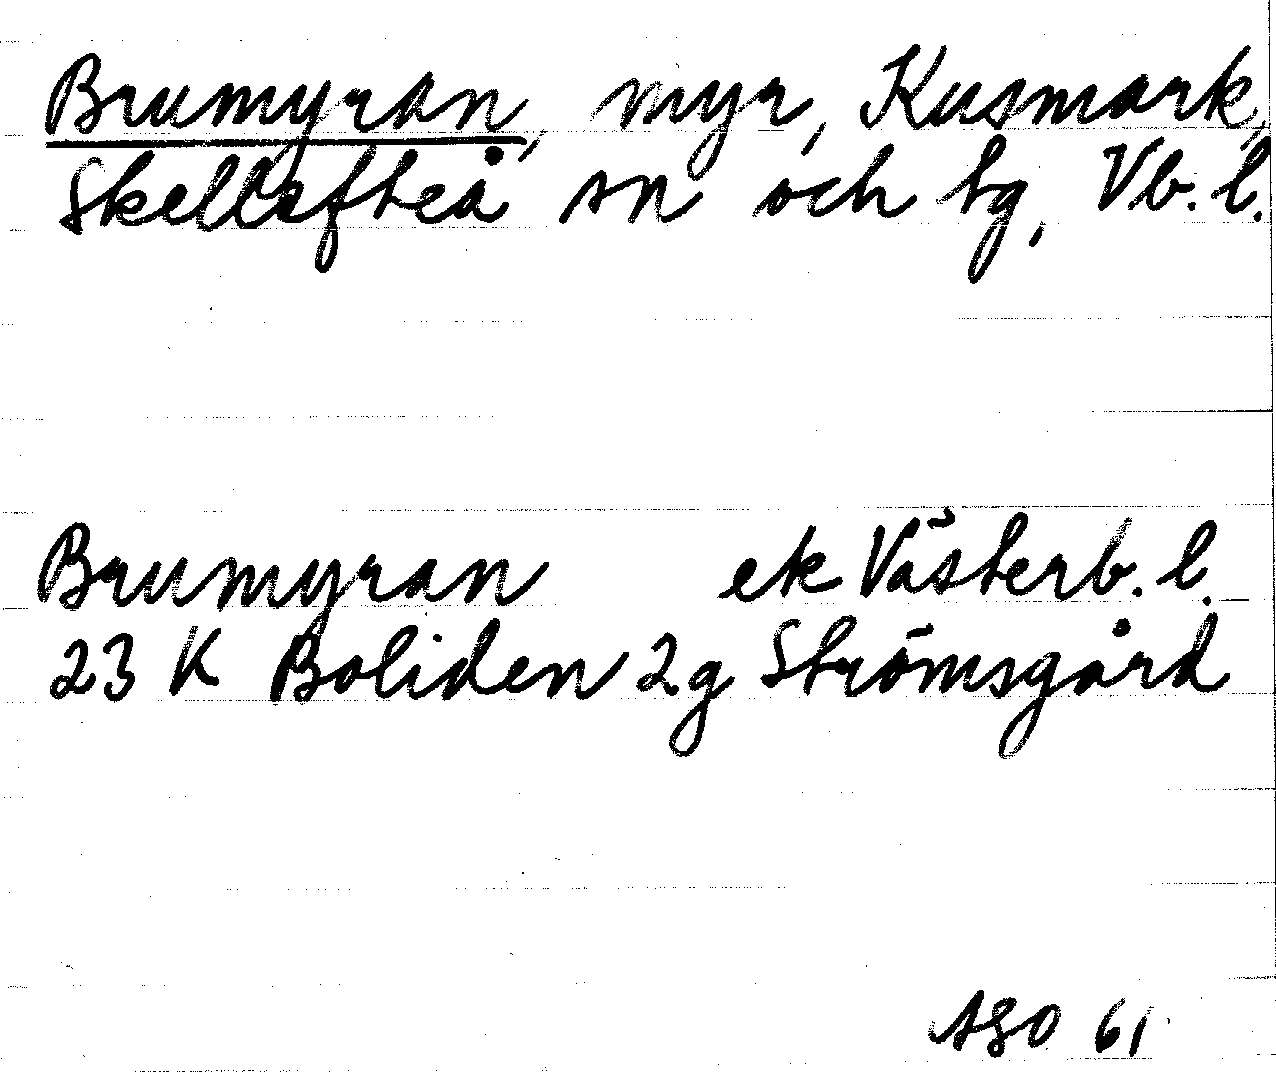 Brumyran, myr, Kusmark,
Skellefteå sn och tg, Vb. l.
Brumyran ek Västerb. l.
23 K Boliden 2g Strömsgård
61